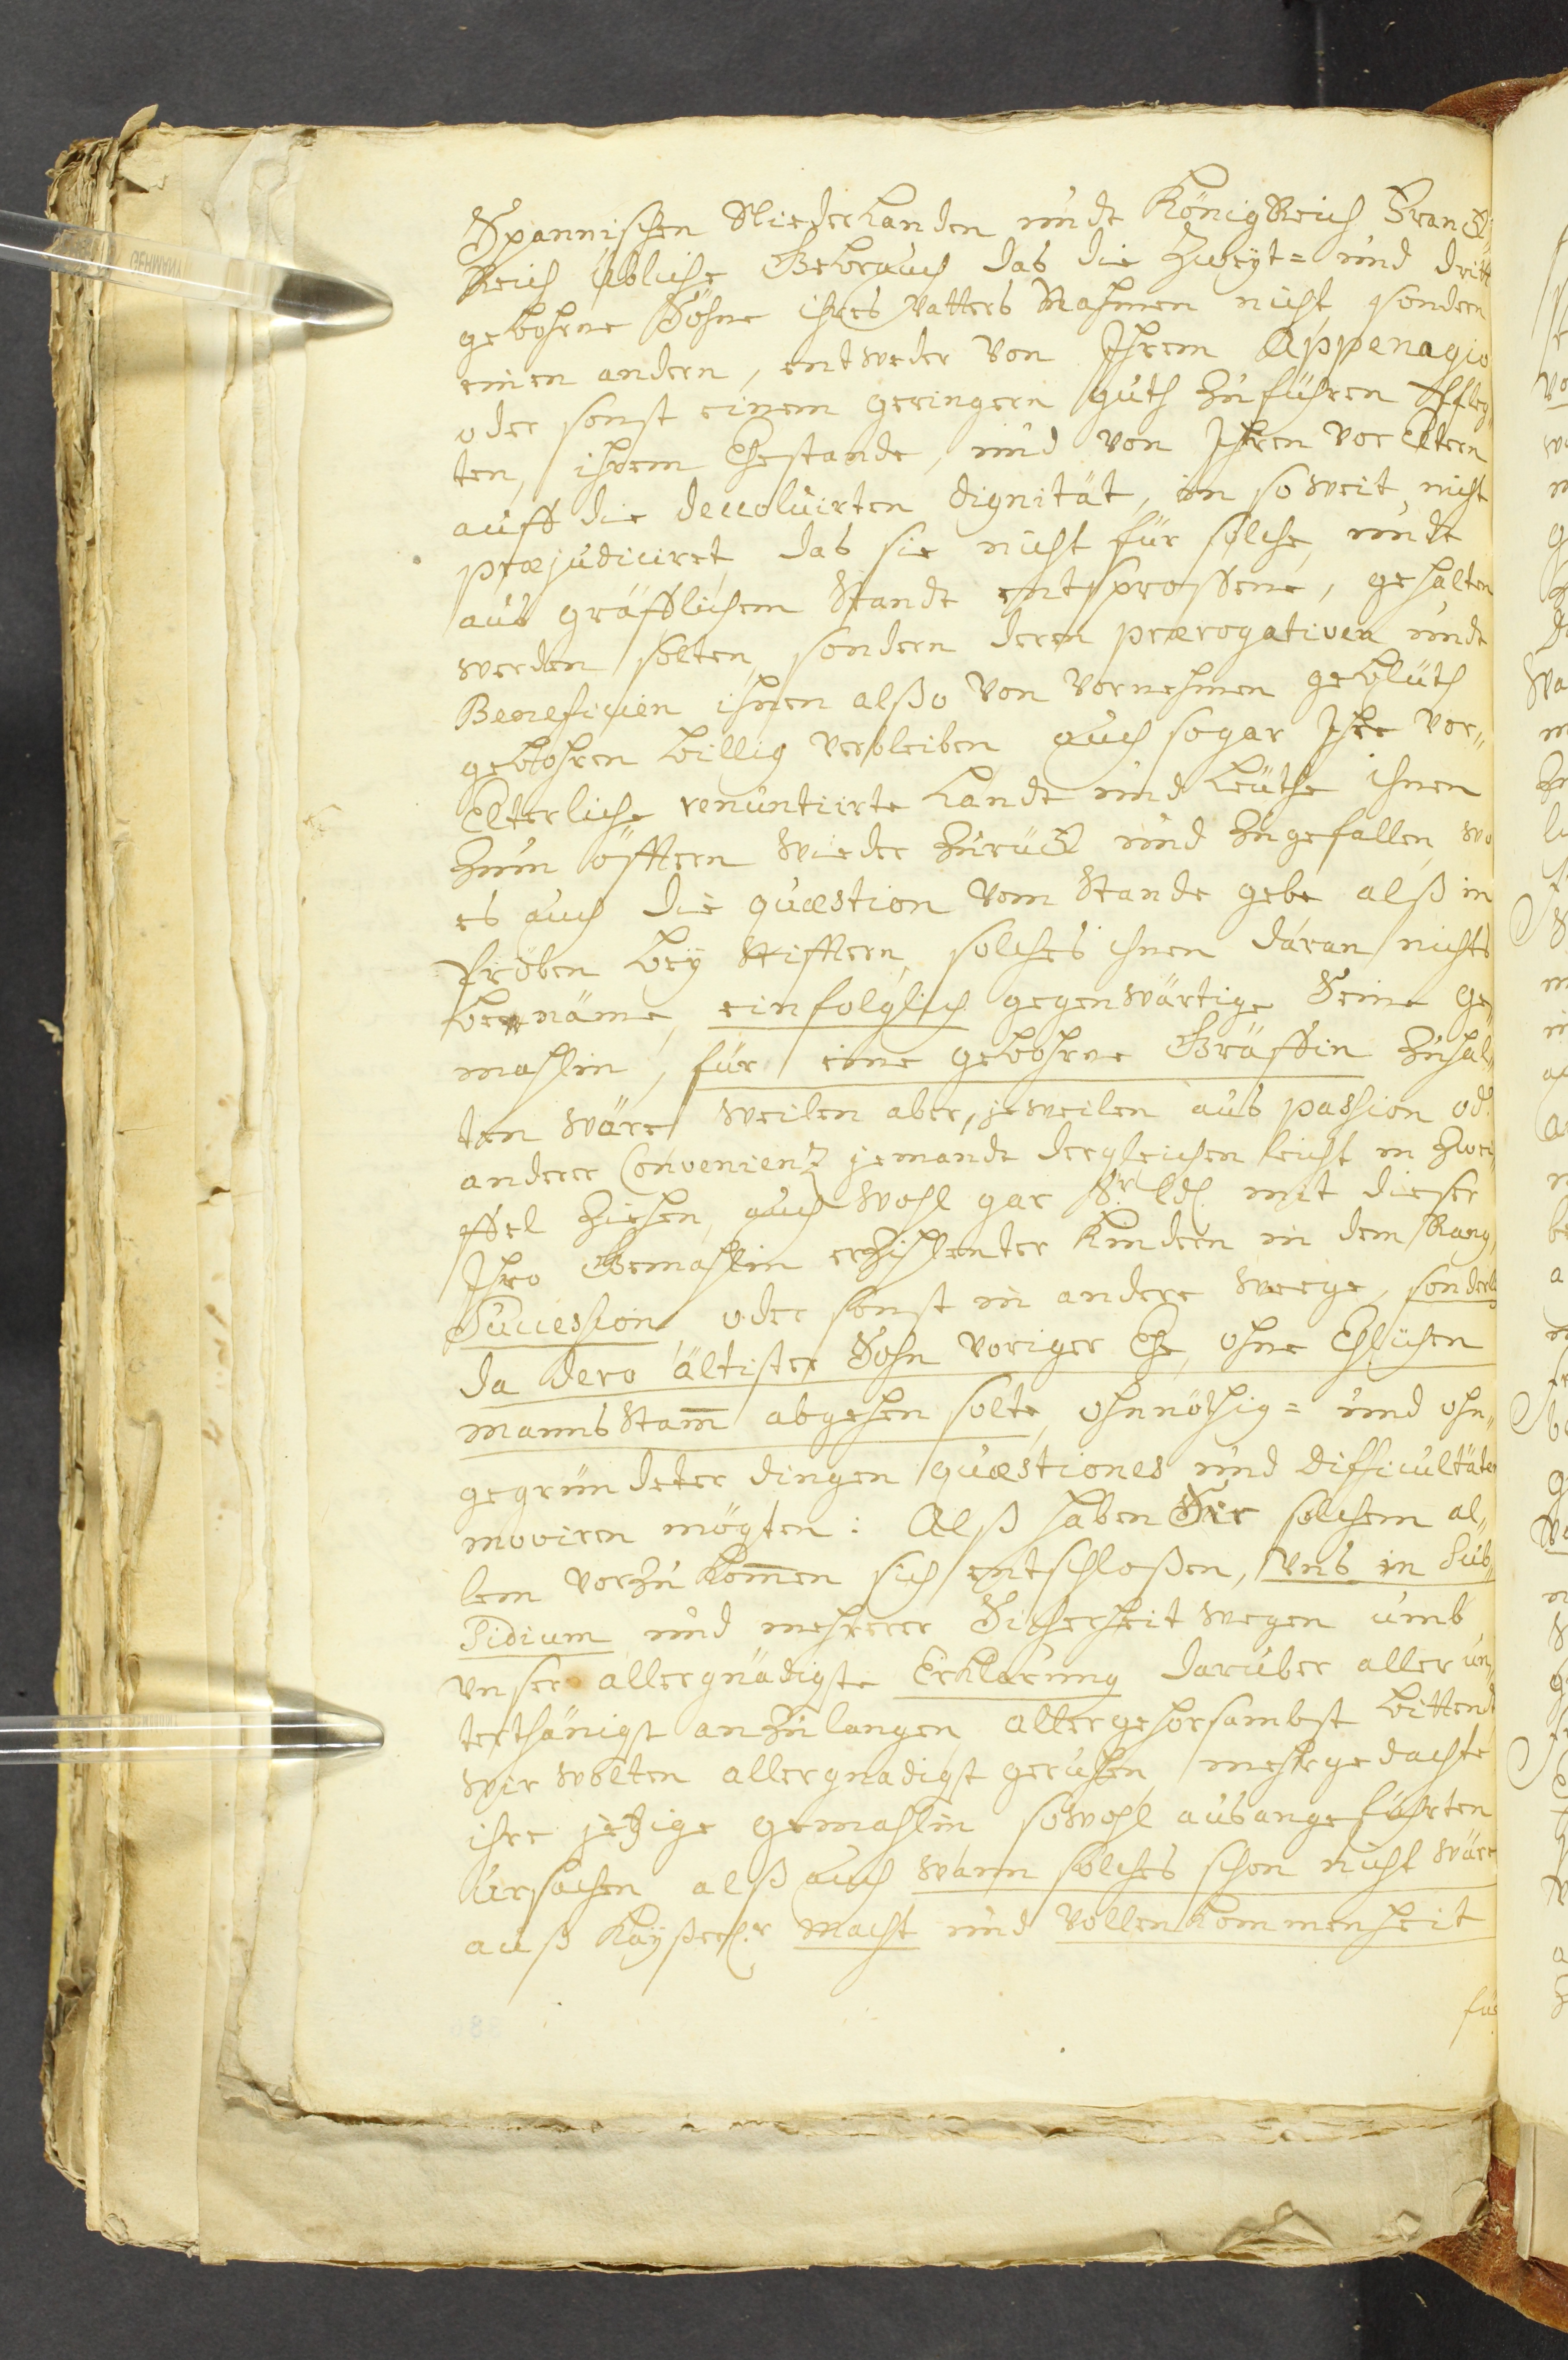 Spannischen Niederlanden undt König Reich Franck-
Reich übliche Gebrauch das die Zweyt= und dritt
gebohrne Söhne ihres Vatters Nahmen nicht, sondern
einen andern, entweder von Ihrem Appenagio
oder sonst einem geringern guth zuführen pfleg-
ten, ihrem Ehestande, und von Ihren vor Eltern
auff die devoluirten dignität, in soweit nicht
præjudiciret, das sie nicht für solche, undt
aus gräfflichem Stande entsprossene, gehalten
werden solten, sondern deren prærogativen undt
Beneficien ihnen also von vornehmen geblüth
gebohren billig verbleiben, auch sogar Ihre vor-
Elterliche renuntiirte Landt und Leuthe ihnen
zum öfftern wieder zurück und zugefallen, wo
es auch die quæstion vom Stande gebe, alß in
Proben bey Stifftern, solches ihnen daran nichts
benäme, einfolglich gegenwärtige Seine Ge-
mahlin, für eine gebohrne Gräffin zuhal-
ten wäre, weilen aber, jeweilen aus passion od.
anderer Convenientz jemandt dergleichen leicht in Zwei-
ffel ziehen, auch wohl gar Sr. Ldl. mit dieser
Ihro Gemahlin erzihlenter Kindern in dem Rang,
Succession, oder sonst in andere weege, sonderl.
da dero ältister Sohn voriger Ehe, ohne Ehlichen
manns Stam̄ abgehen solte, ohnnöthig= und ohn-
gegründeter dingen quæstiones und difficultäten
moviren mögten: Alß haben Sie solchem al-
lem vorzukom̄en sich entschloßen, Uns in Sub-
sidium und mehrerer Sicherheit wegen umb
unser allergnädigste Erklarung darüber allerun-
terthänigst anzulangen, allergehorsambst bittend
wir wolten allergnadigst geruhen, mehrgedachte
ihre jetzige gemahlin, sowohl aus angeführten
ursachen alß auch wann solches schon nicht wäre
auß Kayserl.r macht und vollenkommenheit
für
GERMANY